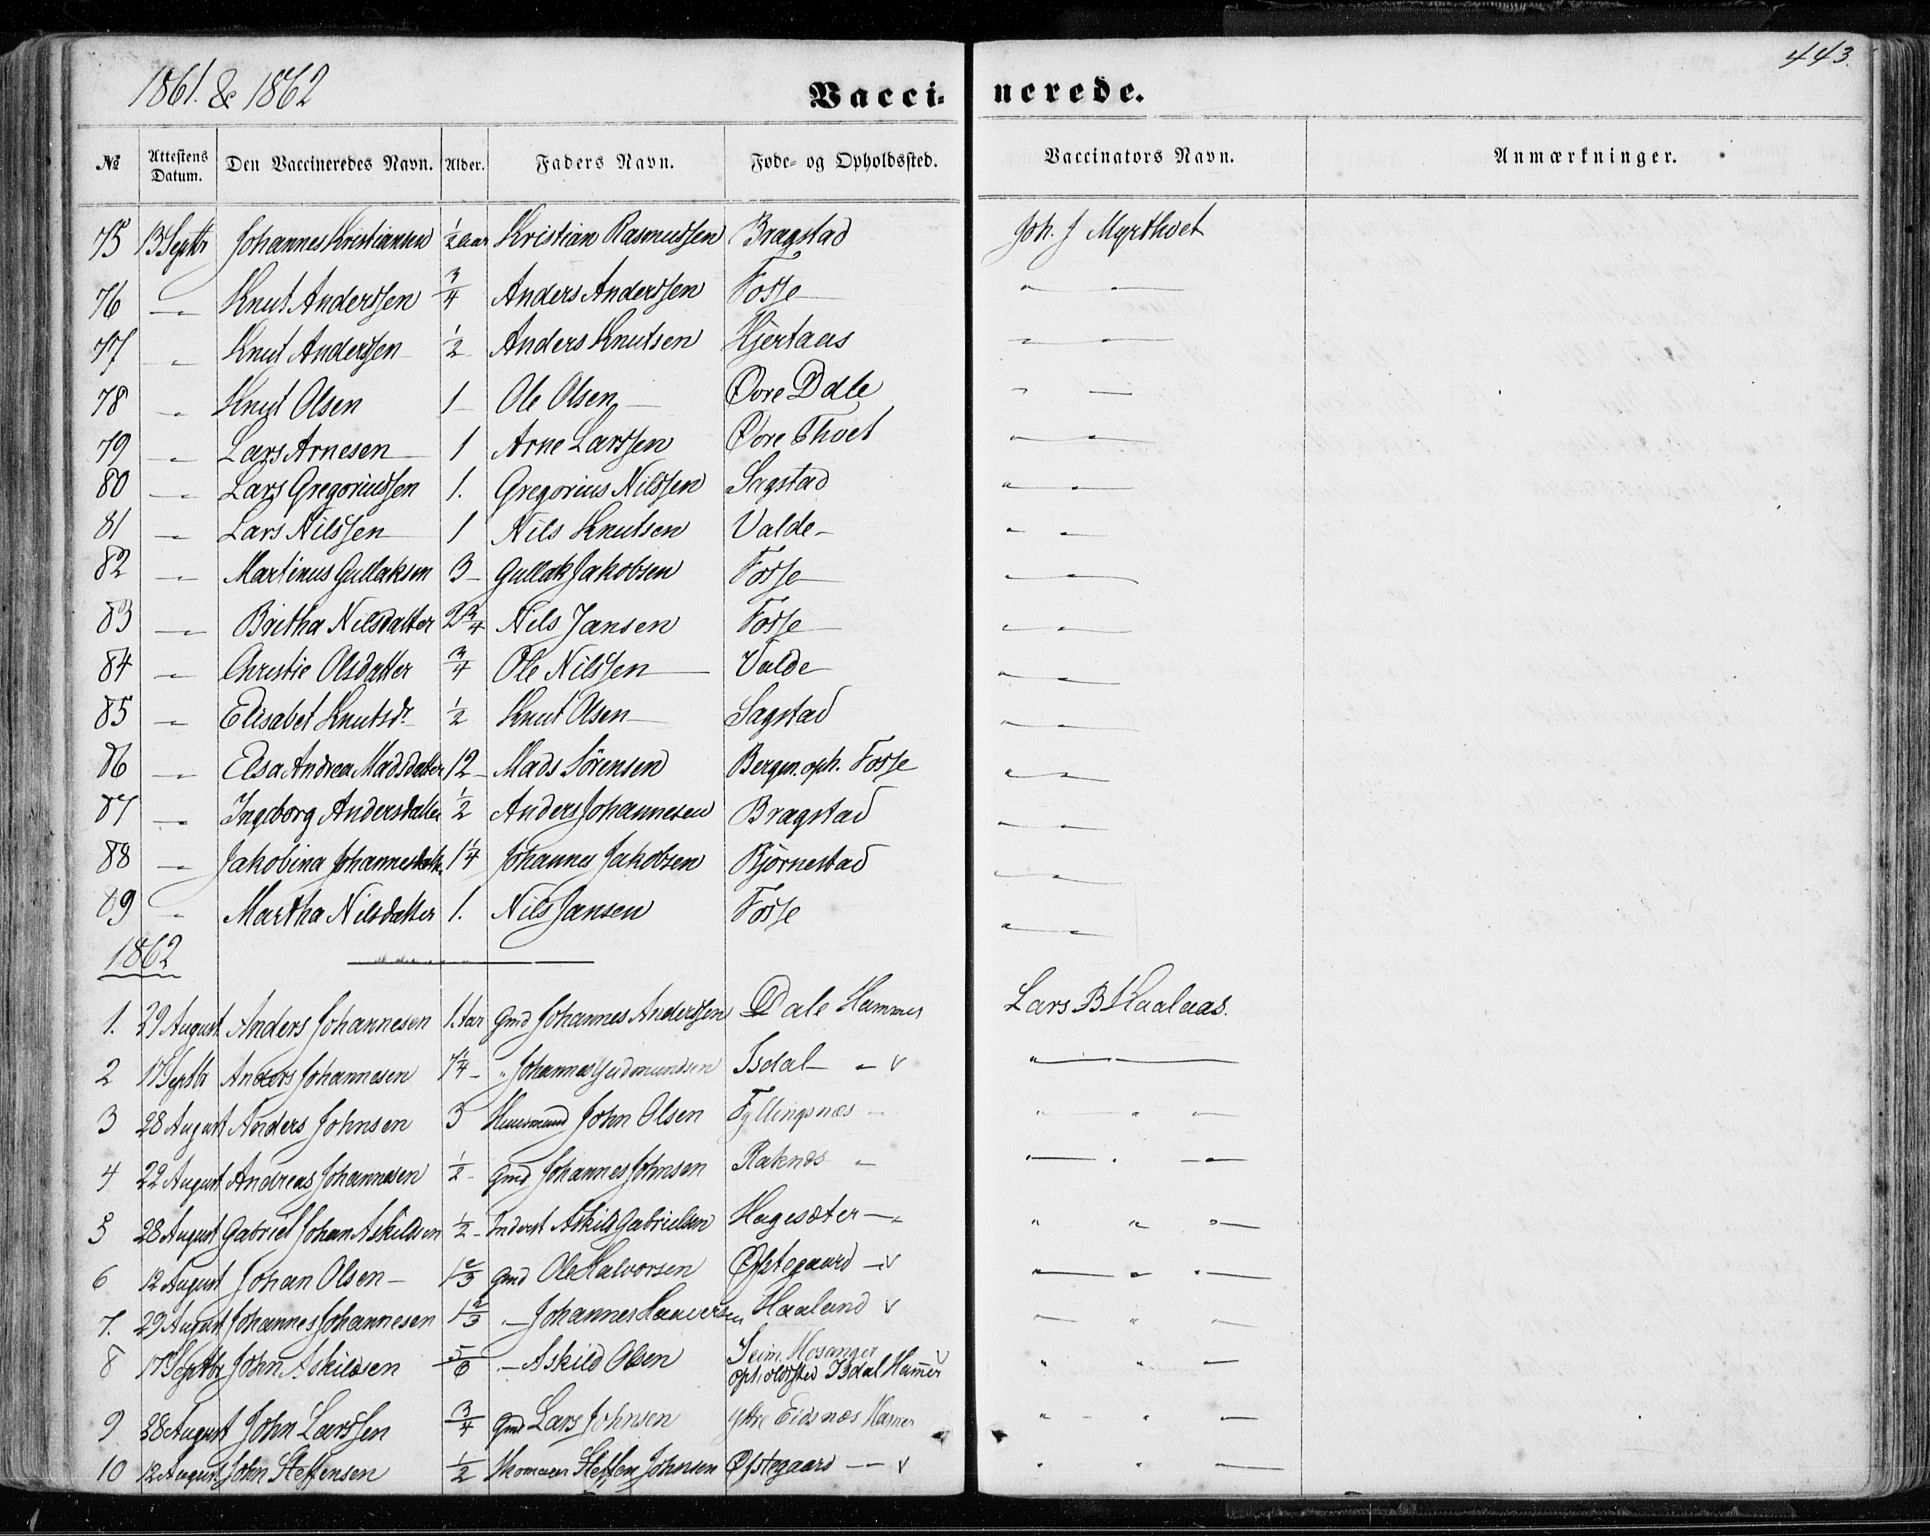 443.
1861. & 1862
Vaccinerede.
№ Attestens Datum. Den Vaccineredes Navn. Alder. Faders Navn. Føde- og Opholdssted. Vaccinators Navn. Anmærkninger.
75 13 Septbr Johannes Kristiansen ½ Aar Kristian Rasmussen Bragstad Joh. J Myrthvet
76 〃 Knut Anderssen ¾ Anders Anderssen Fosse 〃 —
77 〃 Knut Anderssen ½ Anders Knutsen Hjertaas 〃 —
78 〃 Knut Olsen 1 Ole Olsen Øvre Dale 〃 —
79 〃 Lars Arnesen 1 Arne Larssen Øvre Thvet 〃 〃
80 〃 Lars Gregoriussen 1. Gregorius Nilssen Sagstad 〃 〃
81 〃 Lars Nilssen 1 Nils Knutsen Valde 〃 〃
82 〃 Martinus Gullaksen 3 Gullak Jakobsen Fosse 〃 〃
83 〃 Britha Nilsdatter 2¾ Nils Jansen Fosse 〃 〃
84 〃 Christie Olsdatter ¾ Ole Nilssen Valde 〃 〃
85 〃 Elisabet Knutsdr ½ Knut Olsen Sagstad 〃 〃
86 〃 Elsa Andrea Madsdatter 12 Mads Sörensen Bergen. oph. Fosse 〃 〃
87 〃 Ingeborg Andersdatter ½ Anders Johannesen Bragstad 〃 〃
88 〃 Jakobina Johannesdatter 1¼ Johannes Jakobsen Bjørnestad 〃 〃
89 〃 Martha Nilsdatter 1. Nils Jansen Fosse 〃 〃
1862
1. 29 August Anders Johannesen 1 Aar Gmd Johannes Anderssen Dale Hammer Lars B Kaalaas.
2 17 Septbr Anders Johannesen 〃 Johannes Gudmundsen Isdal 〃 v 〃 〃
3 28 August Anders Johnsen 3 Huusmand John Olsen Fyllingsnæs 〃 〃 〃 〃
4 22 August Andreas Johannesen ½ Gmd Johannes Johnsen Raknes 〃 〃 〃 〃
5 28 August Gabriel Johan Askildsen ½ Inderst Askild Gabrielsen Hagesæter 〃 〃 〃 〃
6 12 August Johan Olsen 1⅔ Gmd Ole Halvorsen Øfstegaard 〃 v 〃 〃 〃
7. 29 August Johannes Johannesen 1⅔ 〃 Johannes Haaversen Haaland v 〃 〃 〃
8 17 Septbr John Askildsen ⅚ 〃 Askild Olsen Seim. Hosanger opholdssted Isdal Hamer v 〃 〃 〃
9 28 August John Larssen ¾ Gmd Lars Johnsen ytre Eidsnæs Hamer 〃 〃 〃
10 12 August John Steffensen ½ Steffen Johnsen Øfstegaard 〃 v 〃 〃 〃